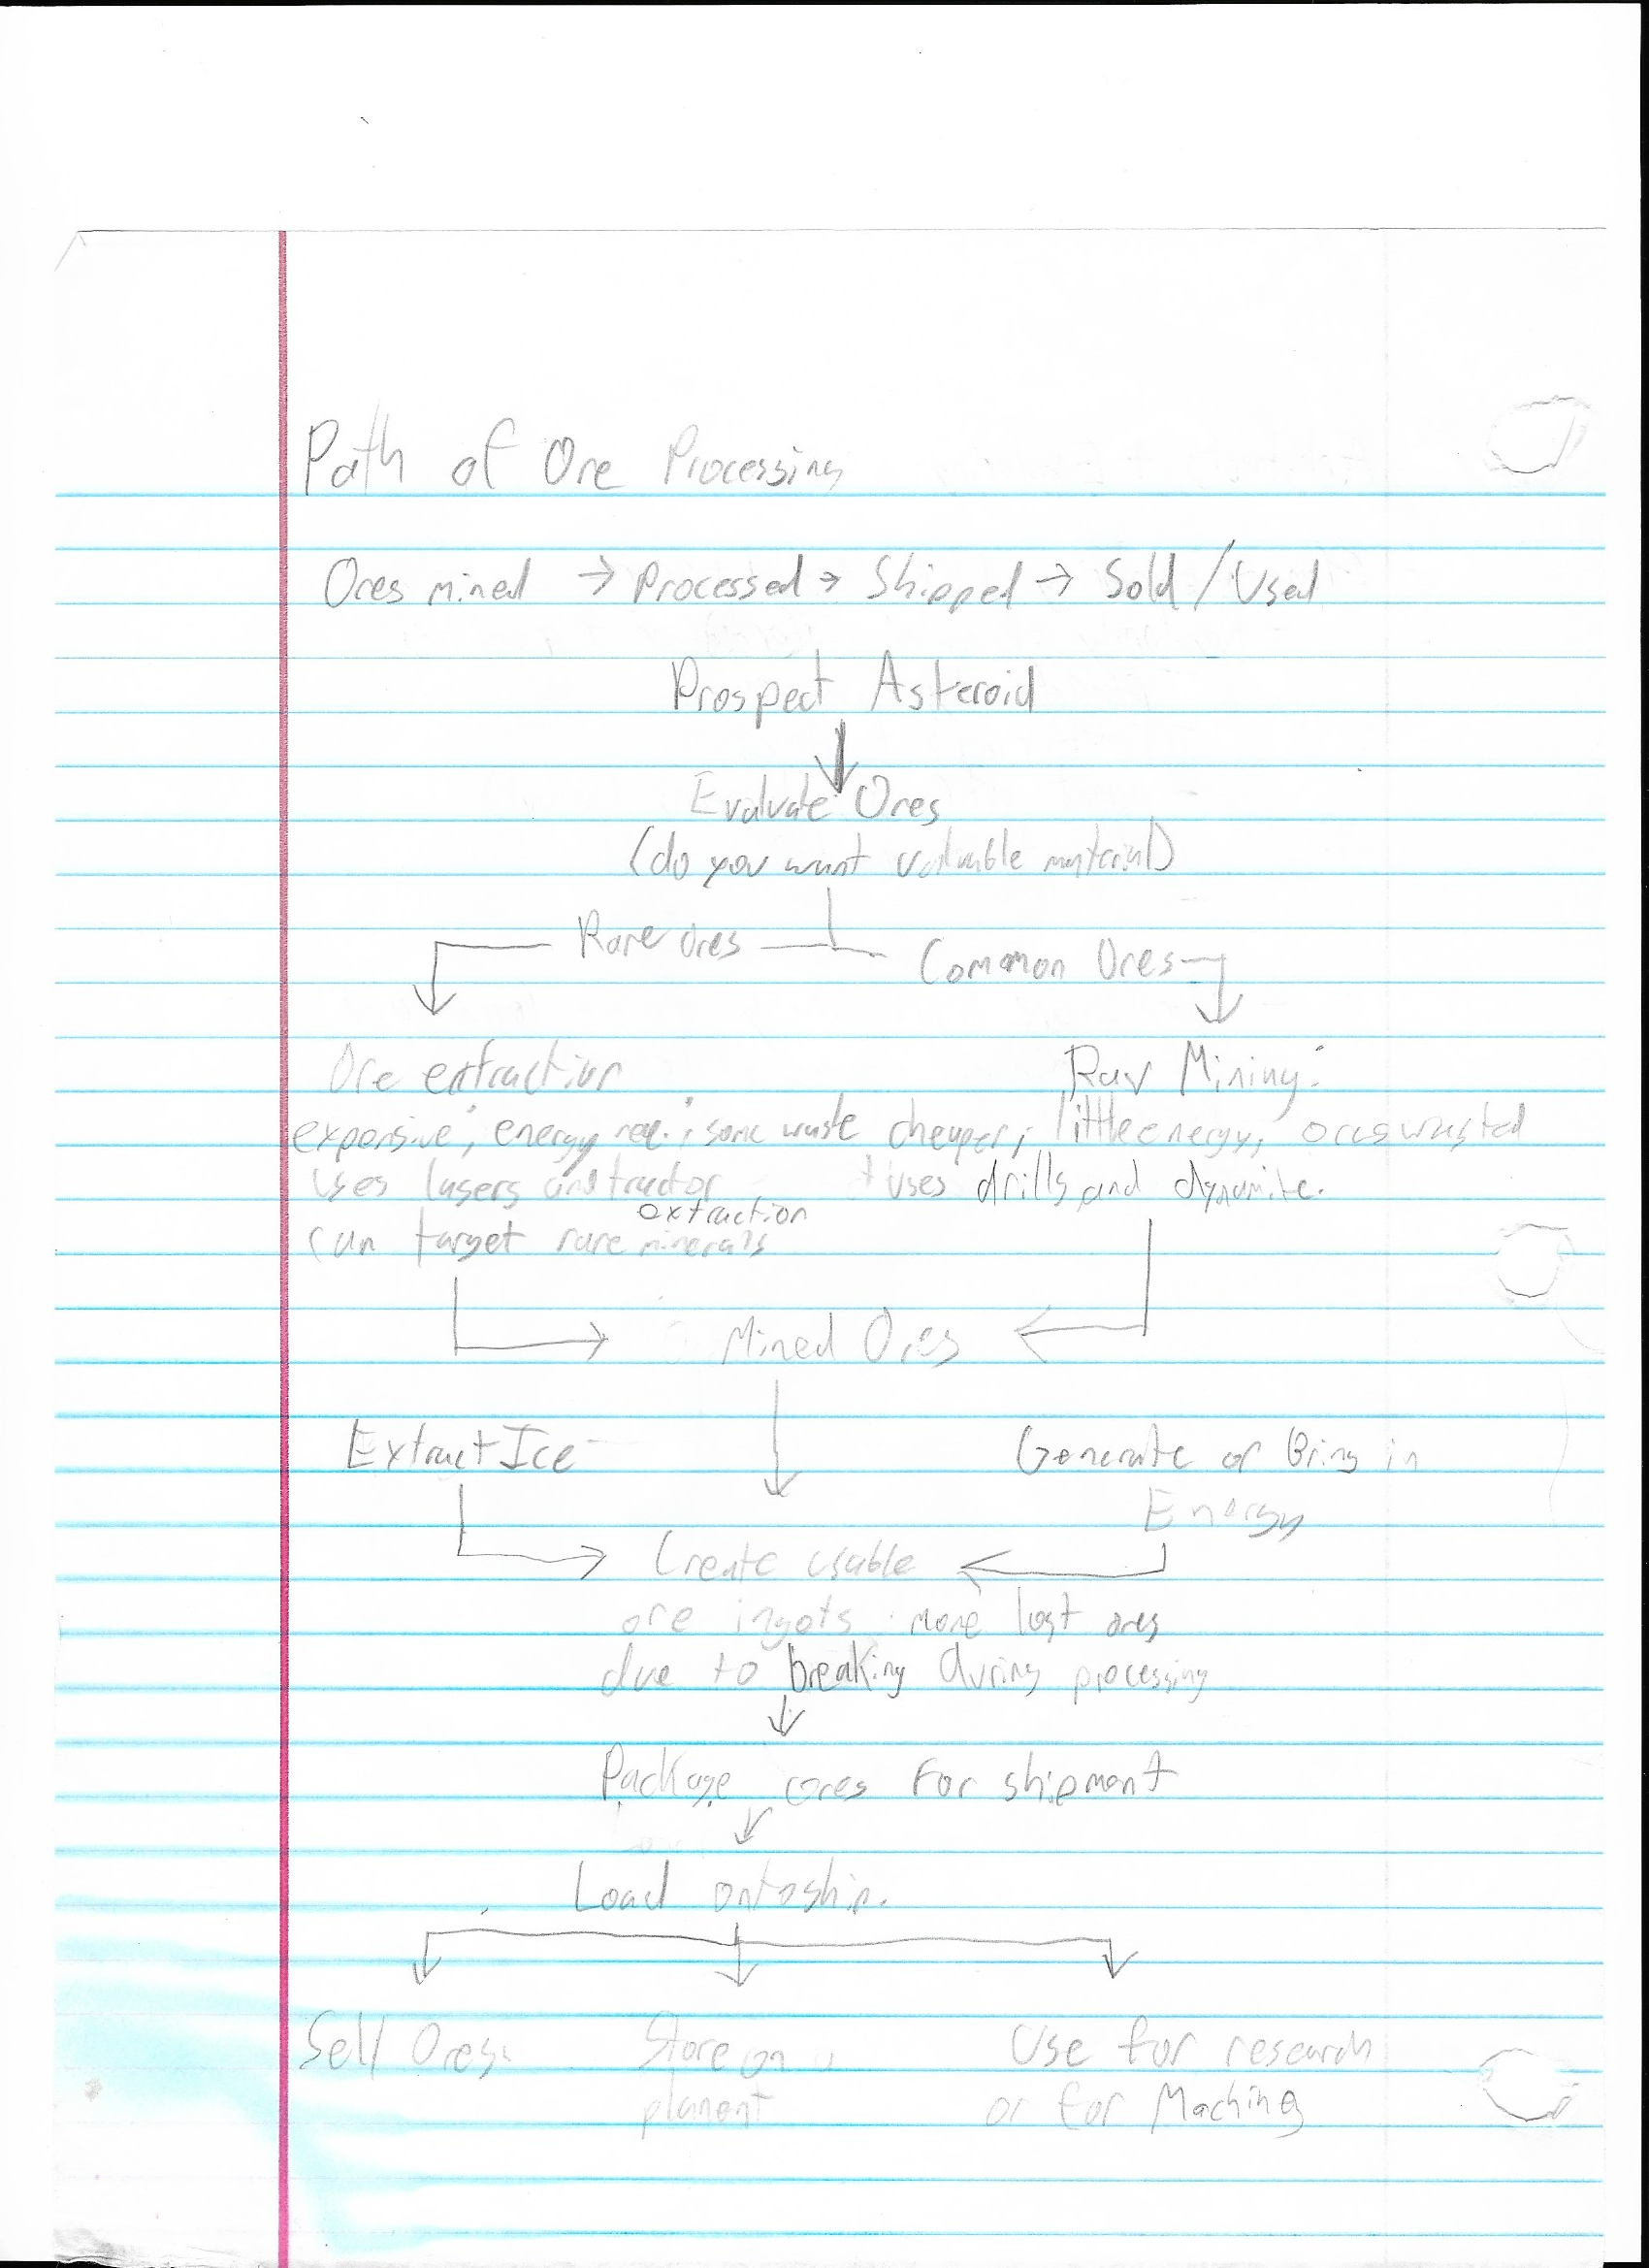 Path of Ore Processing
Ores mined → Processed → Shipped → Sold / Used
Prospect Asteroid
Evaluate Ores
(do you want valuable material)
Rare Ores
Common Ores
Ore extraction
Raw Mining:
expensive; energy req.; some waste
cheaper; little energy; ores wasted
uses lasers and tractor
uses drills and dynamite.
extraction
can target rare minerals
Mined Ores
Extract Ice
Generate or Bring in
Energy
Create usable
ore ingots more lost ores
due to breaking during processing
Package ores for shipment
Load onto ship.
Sell Ores
Store on
planent
Use for research
or for Maching